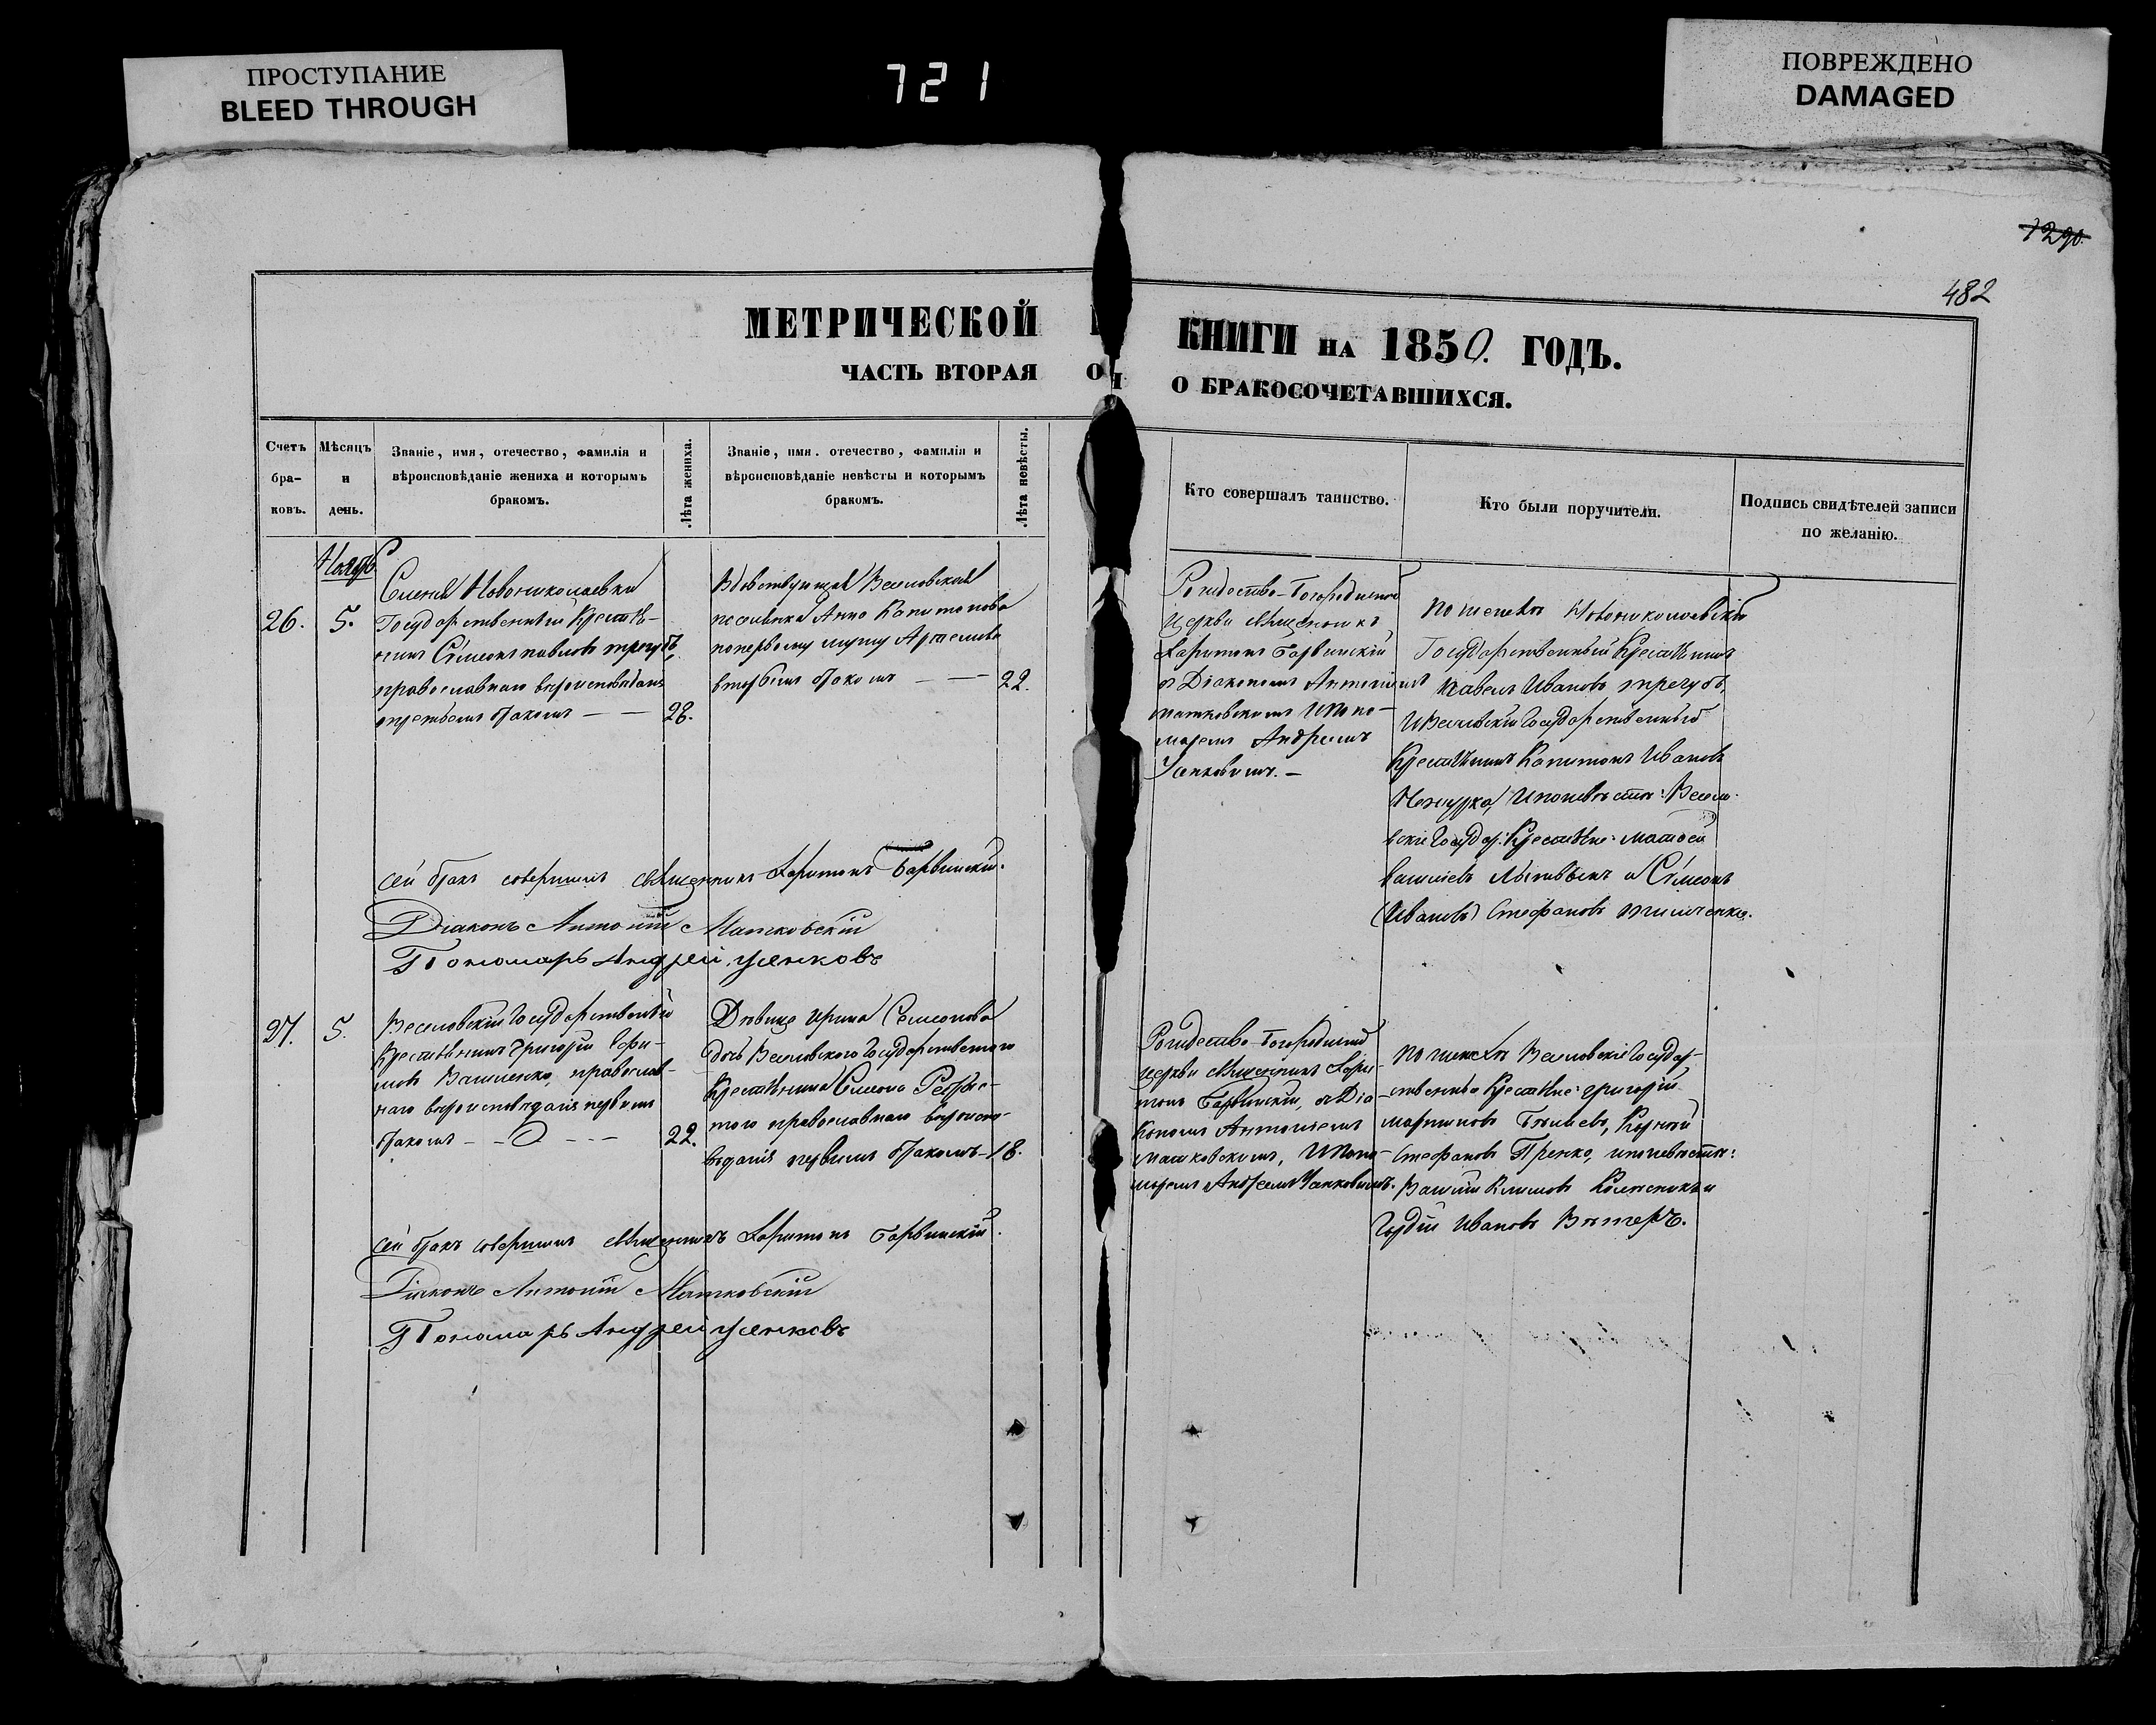 ПРОСТУПАНИЕ
BLEED THROUGH
721
ПОВРЕЖДЕНО
DAMAGED
1290.
482
МЕТРИЧЕСКОЙ КНИГИ НА 1850. ГОДЪ.
ЧАСТЬ ВТОРАЯ О БРАКОСОЧЕТАВШИХСЯ.
Счетъ
бра-
ковъ.
Мѣсяцъ
и
день.
Званіе, имя, отечество, фамилія и
вѣроисповѣданіе жениха и которымъ
бракомъ.
Лѣта жениха.
Званіе, имя. отечество, фамилія и
вѣроисповѣданіе невѣсты и которымъ
бракомъ.
Лѣта невѣсты.
Кто совершалъ таинство.
Кто были поручители.
Подпись свидѣтелей записи
по желанію.
Ноябрь
26.
5.
Новониколаевки
Государственный Крестья-
нинъ Симеонъ Павловъ
православнаго вероисповеданія
бракомъ
28.
Вдовствующая Веселовская
поселянка Анна Капитонова
попервому мужу
вторымъ бракомъ
22.
Рождество-Богородичной
церкви священникъ
Харитонъ Барвинскій
съ Діакономъ Антоніемъ
Матковскимъ и Поно-
маремъ Андреемъ
Усенковымъ.
по женихѣ Новониколаевскій
Государственный Крестьянинъ
Павелъ Ивановъ
и Веселовскій Государственный
Крестьянинъ Капитонъ Ивановъ
и поневѣсте: Весело-
вскіе Государ: Крестьяне: Матфей
и Симеонъ
(Ивановъ) Стефановъ
сей бракъ совершилъ священникъ Харитонъ Барвинскій.
Діаконъ Антоній Матковскій
Пономарь Андрей Усенковъ
27.
5.
Веселовскій Государственный
Крестьянинъ Григорій Ефи-
мовъ Василенко, православ-
наго вероисповеданія первымъ
бракомъ
22.
Девица Ирина Семеонова
дочь Веселовского Государственного
Крестьянина Симеона
православнаго вероиспо-
веданія первымъ бракомъ
18.
Рождество-Богородичной
церкви священникъ Хари-
тонъ Барвинскій, съ Діа-
кономъ Антоніемъ
Матковскимъ, и Поно-
маремъ Андреемъ Усенковымъ.
по женихѣ Веселовскіе Государ-
ственные Крестьяне: Григорій
Мартиновъ Корній
Стефановъ и поневѣсте:
Василій Климовъ Колесникъ и
Гордій Ивановъ Вѣтеръ.
сей бракъ совершилъ священникъ Харитонъ Барвинскій.
Діаконъ Антоній Матковскій
Пономарь Андрей Усенковъ